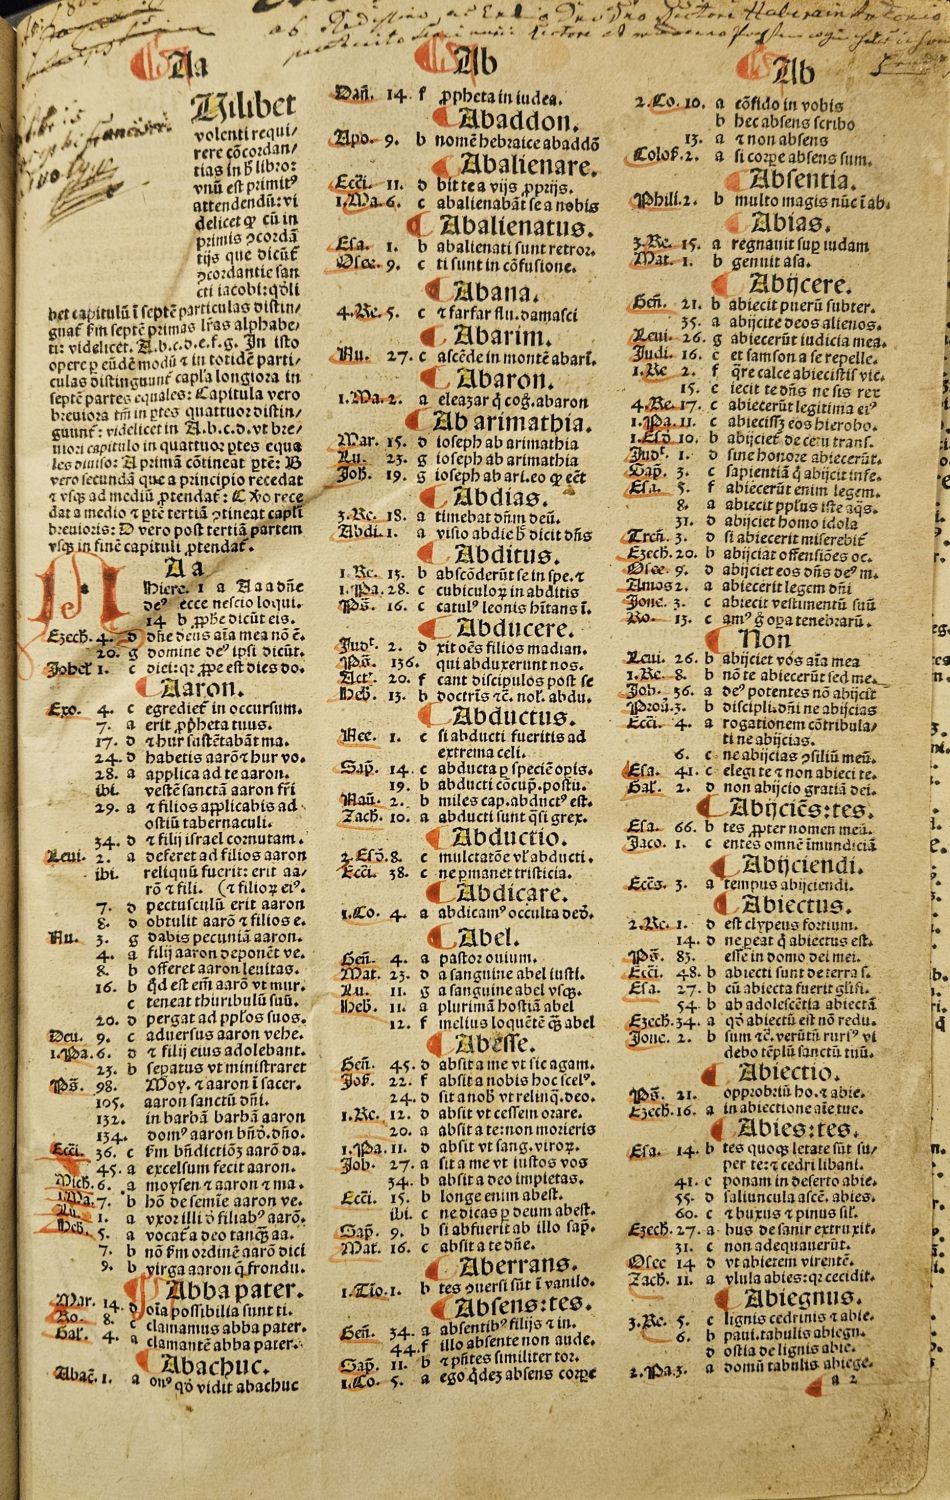 Aa
Uilibet
volenti requi/
rere cōcordan/
tias in h̄ libro:
vnū est primitꝰ
attendendū: vi
delicet ꝙ cū in
primis ꝯcordā
tijs que dicūt̄
ꝯcordantie san
cti iacobi: qđli
bet capitulū ī septē particulas distin/
guat̄ s̄m septē primas lr̄as alphabe/
ti: videlicet. A.b.c.d.e.f.g. In isto
opere ꝑ eūdē modū ⁊ in totidē parti/
culas distinguunt̄ capl̄a longiora in
septē partes equales: Capitula vero
breuiora tm̄ in ꝑtes quattuor distin/
guunt̄: videlicet in A.b.c.d. vt bre/
uiori capitulo in quattuor ꝑtes equa
les diuiso: A primā cōtineat ꝑtē: B
vero secundā que a principio recedat
⁊ vsqꝫ ad mediū ꝓtendat̄: C x̄o rece
dat a medio ⁊ ꝑtē tertiā ꝯtineat capl̄i
breuioris: D vero post tertiā partem
vsqꝫ in finē capituli ꝓtendat̄.
Aa
Hiere. 1 a Aaa dn̄e
deꝰ ecce nescio loqui.
14 b ꝓphe dicūt eis.
Ezech. 4. d dn̄e deus aīa mea nō ē.
20. g domine deꝰ ipsi dicūt.
Johel̄ 1. c diei: qꝛ ꝓpe est dies do.
Aaron.
Exo. 4. c egrediet̄ in occursum.
7. a erit ꝓpheta tuus.
17. d ⁊ hur sustētabāt ma.
24. d habetis aarō ⁊ hur vo.
28. a applica ad te aaron.
ibi. vestē sanctā aaron fr̄i
29. a ⁊ filios applicabis ad
ostiū tabernaculi.
34. d ⁊ filij israel cornutam.
Leui. 2. a deferet ad filios aaron
ibi. reliquū fuerit: erit aa/
rō ⁊ fili. (⁊ filioꝝ eiꝰ.
7. d pectusculū erit aaron
8. d obtulit aarō ⁊ filios e.
Nu. 3. g dabis pecuniā aaron.
4. a filij aaron deponēt ve.
8. b offeret aaron leuitas.
16. b qđ est em̄ aaron vt mur.
c teneat thuribulū suū.
20. d pergat ad pplos suos.
Deu. 9. c aduersus aaron vehe.
1.Pa. 6. d ⁊ filij eius adolebant.
23. b seꝑatus vt ministraret
Ps̄. 98. Moy. ⁊ aaron ī sacer.
105. aaron sanctū dn̄i.
132. in barbā barbā aaron
134. domꝰ aaron bn̄d̄. dn̄o.
Ecci. 36. c s̄m bn̄dictiōꝫ aarō da.
45. a excelsum fecit aaron.
Mich. 6. a moysen ⁊ aaron ⁊ ma.
1.Ma. 7. b hō de semīe aaron ve.
Lu. 1. a vxor illi d̄ filiabꝰ aarō.
Heb. 5. a vocat̄ a deo tanqꝫ aa.
7. b nō s̄m ordinē aarō dici
9. b virga aaron q̄ frondu.
Abba pater.
Mar. 14. d oīa possibilia sunt ti.
Ro. 8. c clamamus abba pater.
Gal̄. 4. a clamantē abba pater.
Abachuc.
Abac̄. 1. a onꝰ qđ vidit abachuc
Ab
Dan̄. 14. f ꝓpheta in iudea.
Abaddon.
Apo. 9. b nomē hebraice abaddō
Abalienare.
Ecci. 11. d bit te a vijs ꝓprijs.
1.Ma. 6. c abalienabāt se a nobis
Abalienatus.
Esa. 1. b abalienati sunt retror.
Osee. 9. c ti sunt in cōfusione.
Abana.
4.Re. 5. c ⁊ farfar flu. damasci
Abarim.
Nu. 27. c ascēde in montē abarī.
Abaron.
1.Ma. 2. a eleazar q̄ coḡ. abaron
Ab arimathia.
Mar. 15. d ioseph ab arimathia
Lu. 23. g ioseph ab arimathia
Joh̄. 19. g ioseph ab ari. eo ꝙ eēt
Abdias.
3.Re. 18. a timebat dn̄m deū.
Abdi. 1. a visio abdie h̄ dicit dn̄s
Abditus.
1.Re. 13. b abscōderūt se in spe. ⁊
1.Pa. 28. c cubiculoꝝ in abditis
Ps̄. 16. c catulꝰ leonis hītans ī.
Abducere.
Jud̄. 2. d xit oēs filios madian.
Ps̄. 136. qui abduxerunt nos.
Act̄. 20. f cant discipulos post se
Heb̄. 13. b doctrīs ⁊c̄. nol̄. abdu.
Abductus.
Nee. 1. c si abducti fueritis ad
extrema celi.
Sap̄. 14. c abducta ꝑ speciē opis.
19. b abducti cōcup̄. postu.
Nau̅. 2. b miles cap. abductꝰ est.
Zach. 10. a abducti sunt q̄si grex.
Abductio.
2.Esd̄. 8. c mulctatōe vl̄ abducti.
Ecci. 38. c ne ꝑmanet tristicia.
Abdicare.
1.Co. 4. a abdicamꝰ occulta ded̄.
Abel.
Gen̄. 4. a pastor ouium.
Mat. 23. d a sanguine abel iusti.
Lu. 11. g a sanguine abel vsqꝫ.
Heb̄. 11. a plurimā hostiā abel
12. f melius loquētē qꝫ abel
Abesse.
Gen̄. 45. d absit a me vt sic agam.
Jos̄. 22. f absit a nobis hoc scelꝰ.
24. d sit a nob̄ vt relinq̄. deo.
1.Re. 12. d absit vt cessem orare.
20. a absit a te: non morieris
1.Pa. 11. d absit vt sang. viroꝝ.
Job. 27. a sit a me vt iustos vos
34. b absit a deo impietas.
Ecci. 15. b longe enim abest.
ibi. c ne dicas ꝑ deum abest.
Sap̄. 9. b si abfuerit ab illo sap̄.
Mat. 16. c absit a te dn̄e.
Aberrans.
1.Tīo. 1. b tes ꝯuersi sūt ī vanilo.
Absens:tes.
Gen̄. 34. a absentibꝰ filijs ⁊ in.
44. f illo absente non aude.
Sap̄. 11. b ⁊ p̄ntes similiter tor.
1.Co. 5. a ego q̄deꝫ absens corꝑe
Ab
2.Co. 10. a cōfido in vobis
b hec absens scribo
13. a ⁊ non absens
Colos̄. 2. a si corꝑe absens sum.
Absentia.
Phili. 2. b multo magis nūc ī ab.
Abias.
3.Re. 15. a regnauit suꝑ iudam
Mat. 1. b genuit asa.
Abijcere.
Gen̄. 21. b abiecit puerū subter.
35. a abijcite deos alienos.
Leui. 26. g abiecerūt iudicia mea.
Judi. 16. c et samson a se repelle.
1.Re 2. f q̄re calce abiecistis vic.
15. c iecit te dn̄s ne sis rex
4.Re. 17. c abiecerūt legitima eiꝰ
1.Pa. 11. c abiecissꝫ eos hierobo.
1.Esd̄ 10. b abijciet̄ de cetu trans.
Jud̄. 1. d sine honore abiecerūt.
Sap̄. 3. c sapientiā q̄ abijcit infe.
Esa. 5. f abiecerūt enim legem.
8. a abiecit pplus iste aq̄s.
31. d abijciet homo idola
Tren̄. 3. d si abiecerit miserebit̄
Ezech. 20. b abijciat offensiōes oc.
Osee. 9. d abijciet eos dn̄s deꝰ m.
Amos 2. a abiecerit legem dn̄i
Jone. 3. c abiecit vestimentū suū
Ro. 13. c amꝰ g̊ oꝑa tenebrarū.
Non
Leui. 26. b abijciet vos aīa mea
1.Re. 8. b nō te abiecerūt sed me.
Job. 36. a deꝰ potentes nō abijcit
Prou̅. 3. b discipli. dn̄i ne abijcias
Ecci. 4. a rogationem cōtribula/
ti ne abijcias.
6. c ne abijcias ꝯsiliū meū.
Esa. 41. c elegi te ⁊ non abieci te.
Gal̄. 2. d non abijcio gratiā dei.
Abijciēs:tes.
Esa. 66. b tes ꝓpter nomen meū.
Jaco. 1. c entes omnē īmundiciā
Abijciendi.
Eccs̄. 3. a tempus abijciendi.
Abiectus.
2.Re. 1. d est clypeus fortium.
14. d ne ꝑeat q̄ abiectus est.
Ps̄. 83. esse in domo dei mei.
Ecci. 48. b abiecti sunt de terra s.
Esa. 27. b cū abiecta fuerit glisi.
54. b ab adolescētia abiectā
Ezech. 34. a qđ abiectū est nō redu.
Jone. 2. b sum ⁊c̄. verūtn̄ rursꝰ vi
debo tēplū sanctū tuū.
Abiectio.
Ps̄. 21. opprobriū ho. ⁊ abie.
Ezech. 16. a in abiectione aīe tue.
Abies:tes.
Esa. 14. b tes quoqꝫ letate sūt su/
per te: ⁊ cedri libani.
41. c ponam in deserto abie.
55. d saliuncula ascē. abies.
60. c ⁊ buxus ⁊ pinus sil̄.
Ezech. 27. a bus de sanir extruxit.
31. c non adequauerūt.
Osee 14 d vt abietem virentē.
Zach. 11. a vlula abies: qꝛ cecidit.
Abiegnus.
3.Re. 5. c lignis cedrinis ⁊ abie.
6. b paui. tabulis abiegn.
d ostia de lignis abie.
2.Pa. 3. a domū tabulis abiege.
a 2